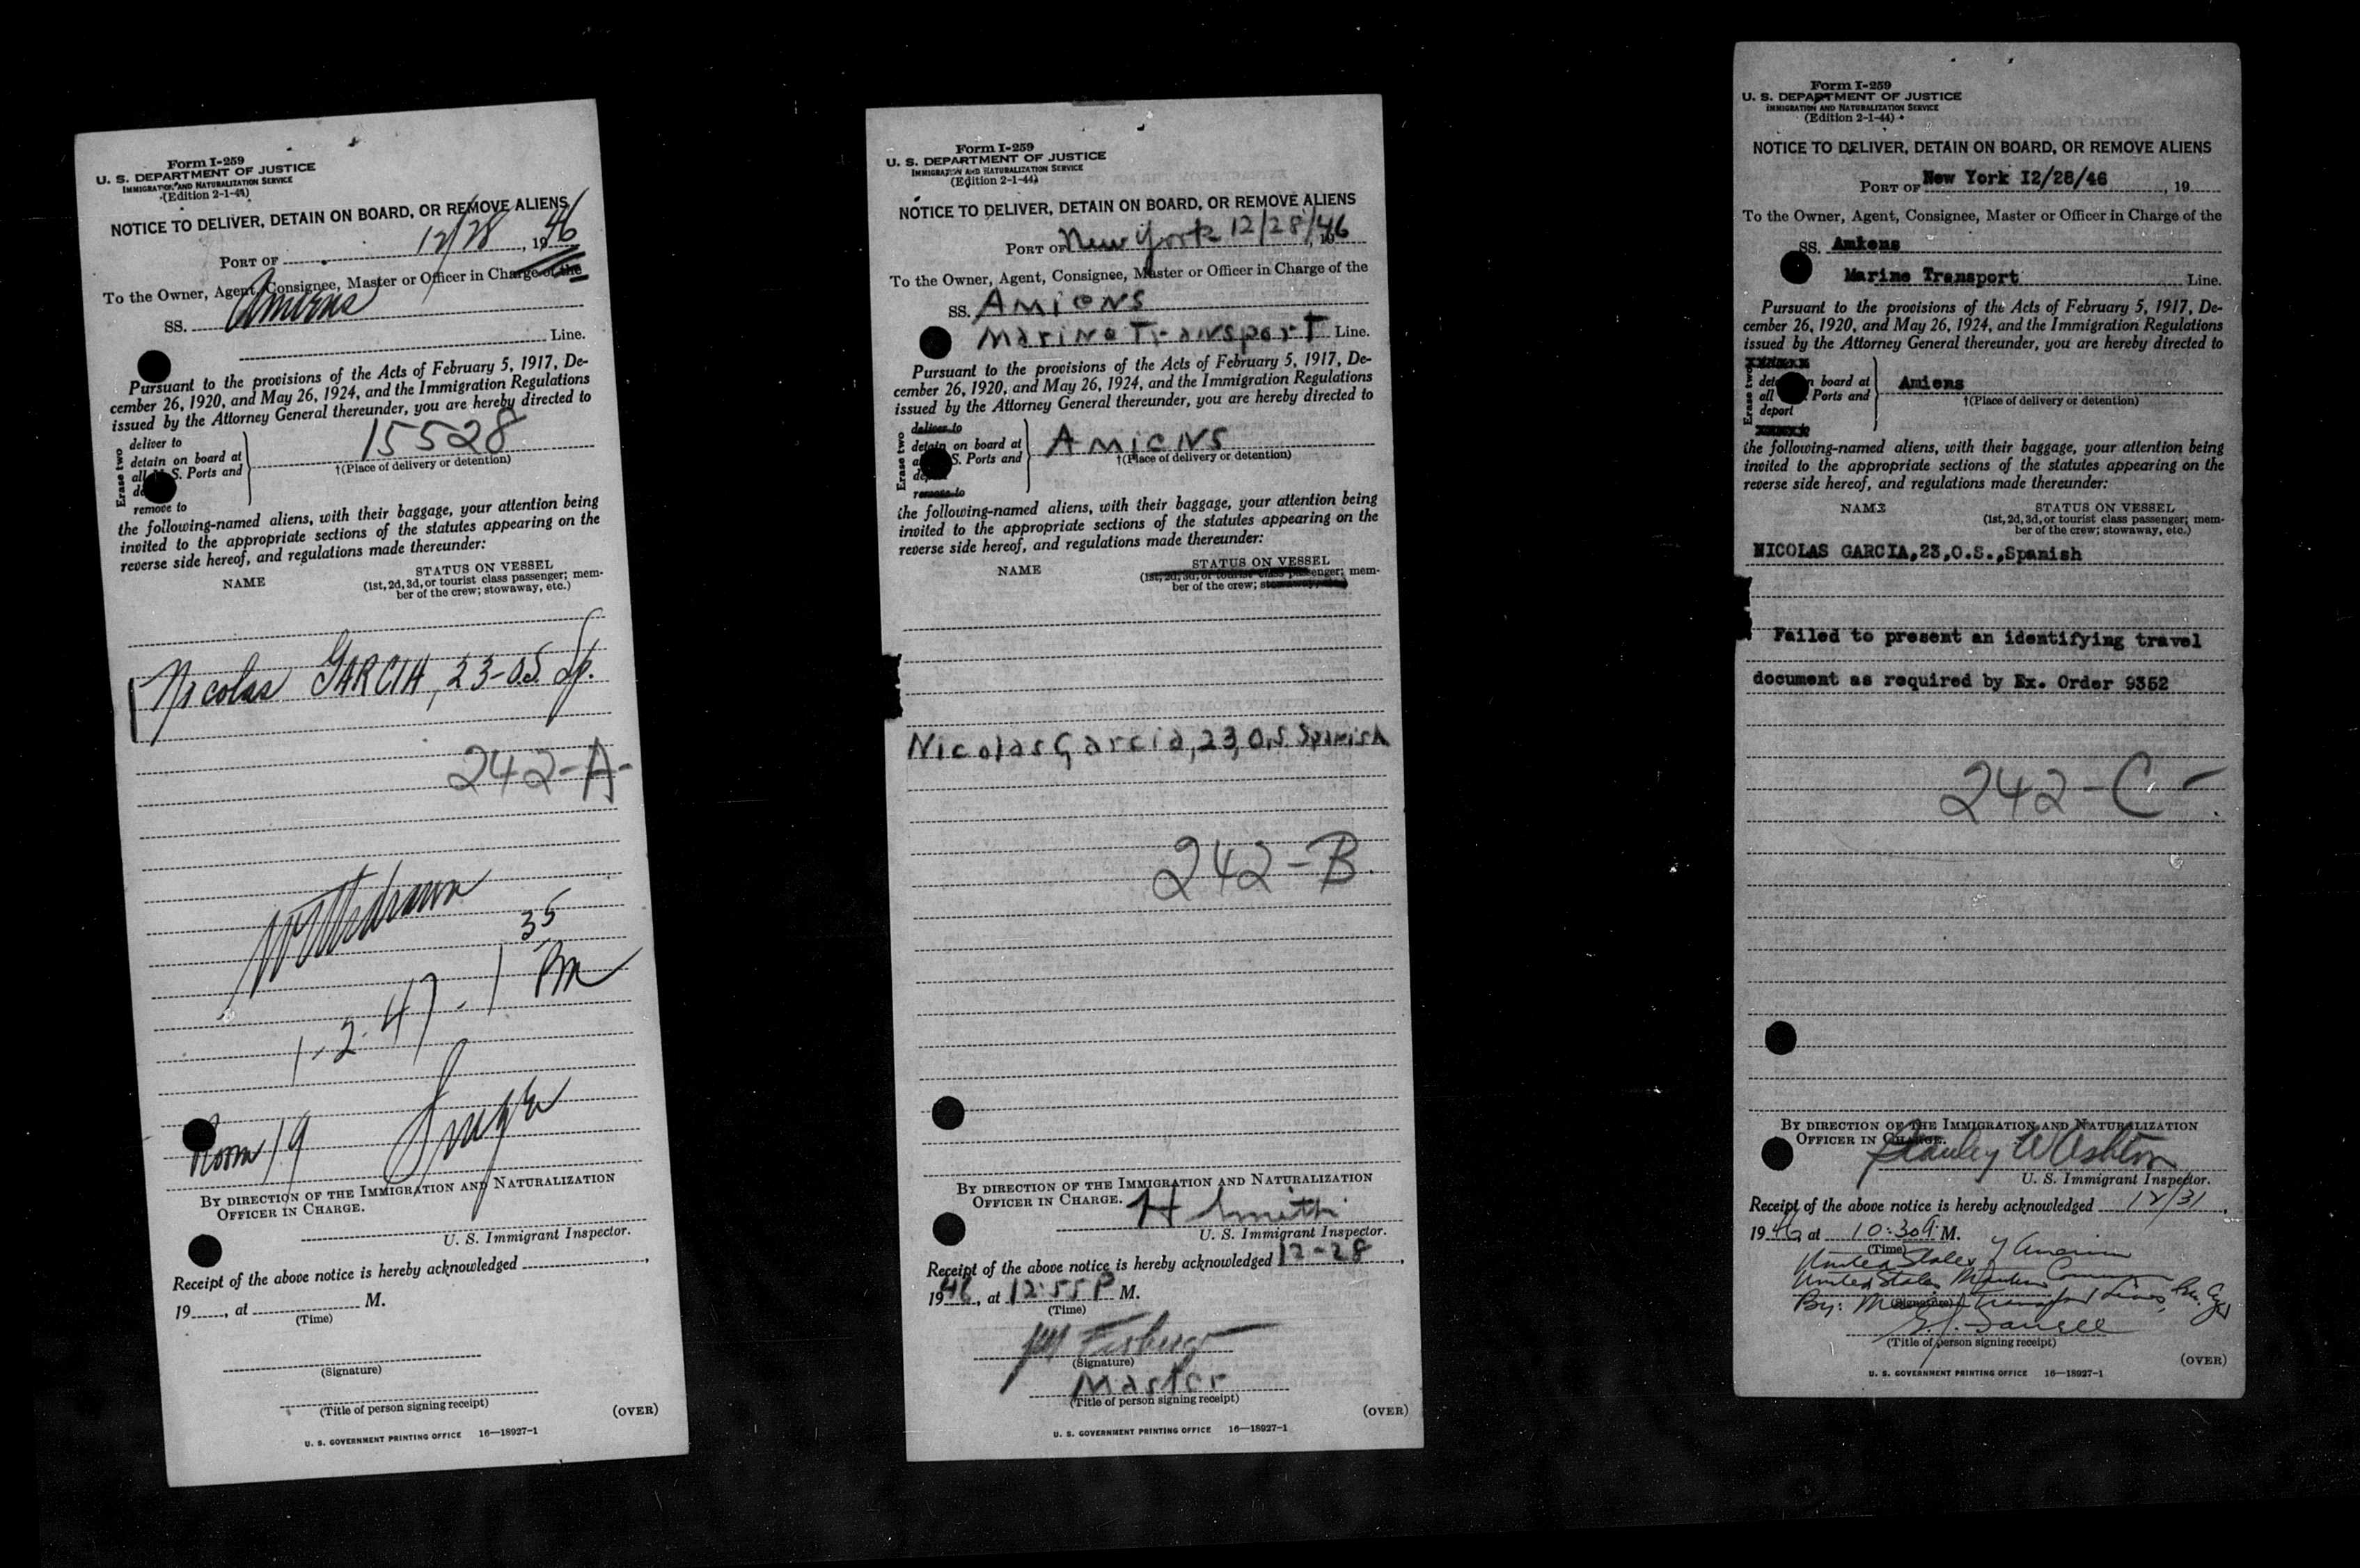 Form I-259
U. S. DEPARTMENT OF JUSTICE
IMMIGRATION AND NATURALIZATION SERVICE
(Edition 2-1-44)
NOTICE TO DELIVER, DETAIN ON BOARD, OR REMOVE ALIENS
PORT OF 12/28, 1946
To the Owner, Agent, Consignee, Master or Officer in Charge of the
SS. Amiens
Line.
Pursuant to the provisions of the Acts of February 5, 1917, De-
cember 26, 1920, and May 26, 1924, and the Immigration Regulations
issued by the Attorney General thereunder, you are hereby directed to
Erase two
deliver to
detain on board at
all S. Ports and
de
remove to
15528
†(Place of delivery or detention)
the following-named aliens, with their baggage, your attention being
invited to the appropriate sections of the statutes appearing on the
reverse side hereof, and regulations made thereunder:
NAME STATUS ON VESSEL
(1st, 2d, 3d, or tourist class passenger; mem-
ber of the crew; stowaway, etc.)
Nicolas GARCIA, 23-O.S. Sp.
242-A-
Withdrawn
1-2-47-1 35 PM
Room 19
BY DIRECTION OF THE IMMIGRATION AND NATURALIZATION
OFFICER IN CHARGE.
U. S. Immigrant Inspector.
Receipt of the above notice is hereby acknowledged
19, at M.
(Time)
(Signature)
(Title of person signing receipt)
(OVER)
U. S. GOVERNMENT PRINTING OFFICE 16—18927-1
Form I-259
U. S. DEPARTMENT OF JUSTICE
IMMIGRATION AND NATURALIZATION SERVICE
(Edition 2-1-44)
NOTICE TO DELIVER, DETAIN ON BOARD, OR REMOVE ALIENS
PORT OF New York 12/28/46
To the Owner, Agent, Consignee, Master or Officer in Charge of the
SS. Amiens
Marine Transport Line.
Pursuant to the provisions of the Acts of February 5, 1917, De-
cember 26, 1920, and May 26, 1924, and the Immigration Regulations
issued by the Attorney General thereunder, you are hereby directed to
Erase two
deliver to
detain on board at
a S. Ports and
deport
remove to
Amiens
†(Place of delivery or detention)
the following-named aliens, with their baggage, your attention being
invited to the appropriate sections of the statutes appearing on the
reverse side hereof, and regulations made thereunder:
NAME STATUS ON VESSEL
(1st, 2d, 3d, or tourist class passenger; mem-
ber of the crew; stowaway, etc.)
Nicolas Garcia, 23, O.S. Spanish
242-B.
BY DIRECTION OF THE IMMIGRATION AND NATURALIZATION
OFFICER IN CHARGE.
H Smith
U. S. Immigrant Inspector.
Receipt of the above notice is hereby acknowledged 12-28,
1946, at 12:55 P M.
(Time)
(Signature)
Master
(Title of person signing receipt)
(OVER)
U. S. GOVERNMENT PRINTING OFFICE 16—18927-1
Form I-259
U. S. DEPARTMENT OF JUSTICE
IMMIGRATION AND NATURALIZATION SERVICE
(Edition 2-1-44)
NOTICE TO DELIVER, DETAIN ON BOARD, OR REMOVE ALIENS
PORT OF New York 12/28/46, 19
To the Owner, Agent, Consignee, Master or Officer in Charge of the
SS. Amiens
Marine Transport Line.
Pursuant to the provisions of the Acts of February 5, 1917, De-
cember 26, 1920, and May 26, 1924, and the Immigration Regulations
issued by the Attorney General thereunder, you are hereby directed to
Erase two
xxxxxx
det n board at
all Ports and
deport
xxxxx
Amiens
†(Place of delivery or detention)
the following-named aliens, with their baggage, your attention being
invited to the appropriate sections of the statutes appearing on the
reverse side hereof, and regulations made thereunder:
NAME STATUS ON VESSEL
(1st, 2d, 3d, or tourist class passenger; mem-
ber of the crew; stowaway, etc.)
NICOLAS GARCIA,23,O.S.,Spanish
Failed to present an identifying travel
document as required by Ex. Order 9352
242-C-
BY DIRECTION OF THE IMMIGRATION AND NATURALIZATION
OFFICER IN CHARGE.
Stanley W Ashton
U. S. Immigrant Inspector.
Receipt of the above notice is hereby acknowledged 12/31,
1946, at 10:30 A. M.
(Time)
United States of America
United States Maritime Commission
By: Marine Transport Lines,
(Signature)
(Title of person signing receipt)
(OVER)
U. S. GOVERNMENT PRINTING OFFICE 16—18927-1